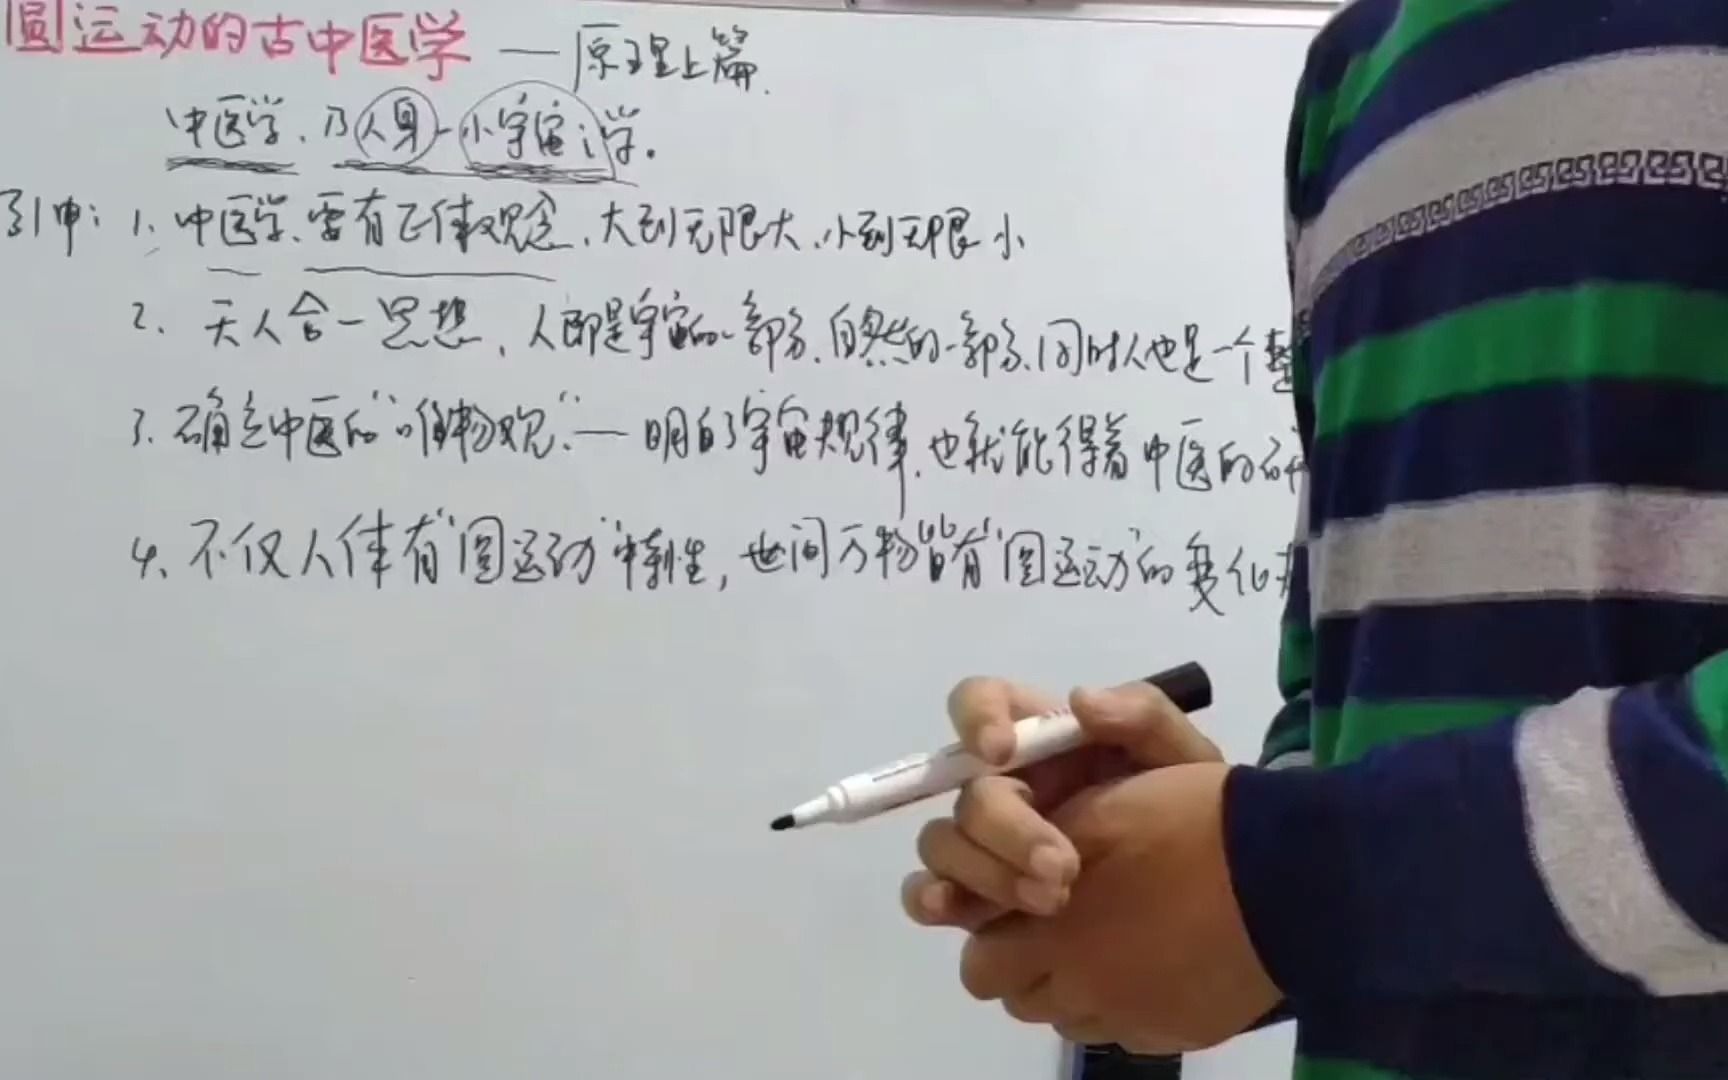 圆运动的古中医学 — 原理上篇.
中医学、乃人身一小宇宙之学。
引申: 1、中医学、需有正体观念、大到无限大、小到无限小
2、天人合一思想、人即是宇宙的一部分、自然的一部分、同时人也是一个整
3、确立中医的“唯物观”— 明白了宇宙规律、也就能得着中医的
4、不仅人体有“圆运动”特性，世间万物皆有“圆运动”的变化